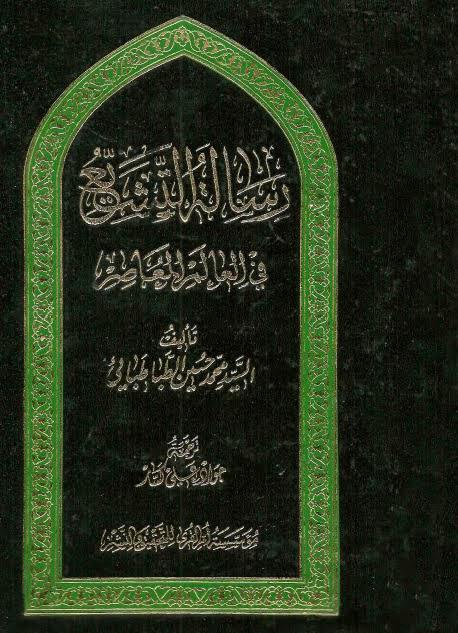 رسالة التشيع
في العالم المعاصر
تأليف
السيد محمد حسين الطباطبائي
ترجمة
جواد علي كسار
مؤسسة أم القرى للتحقيق والنشر